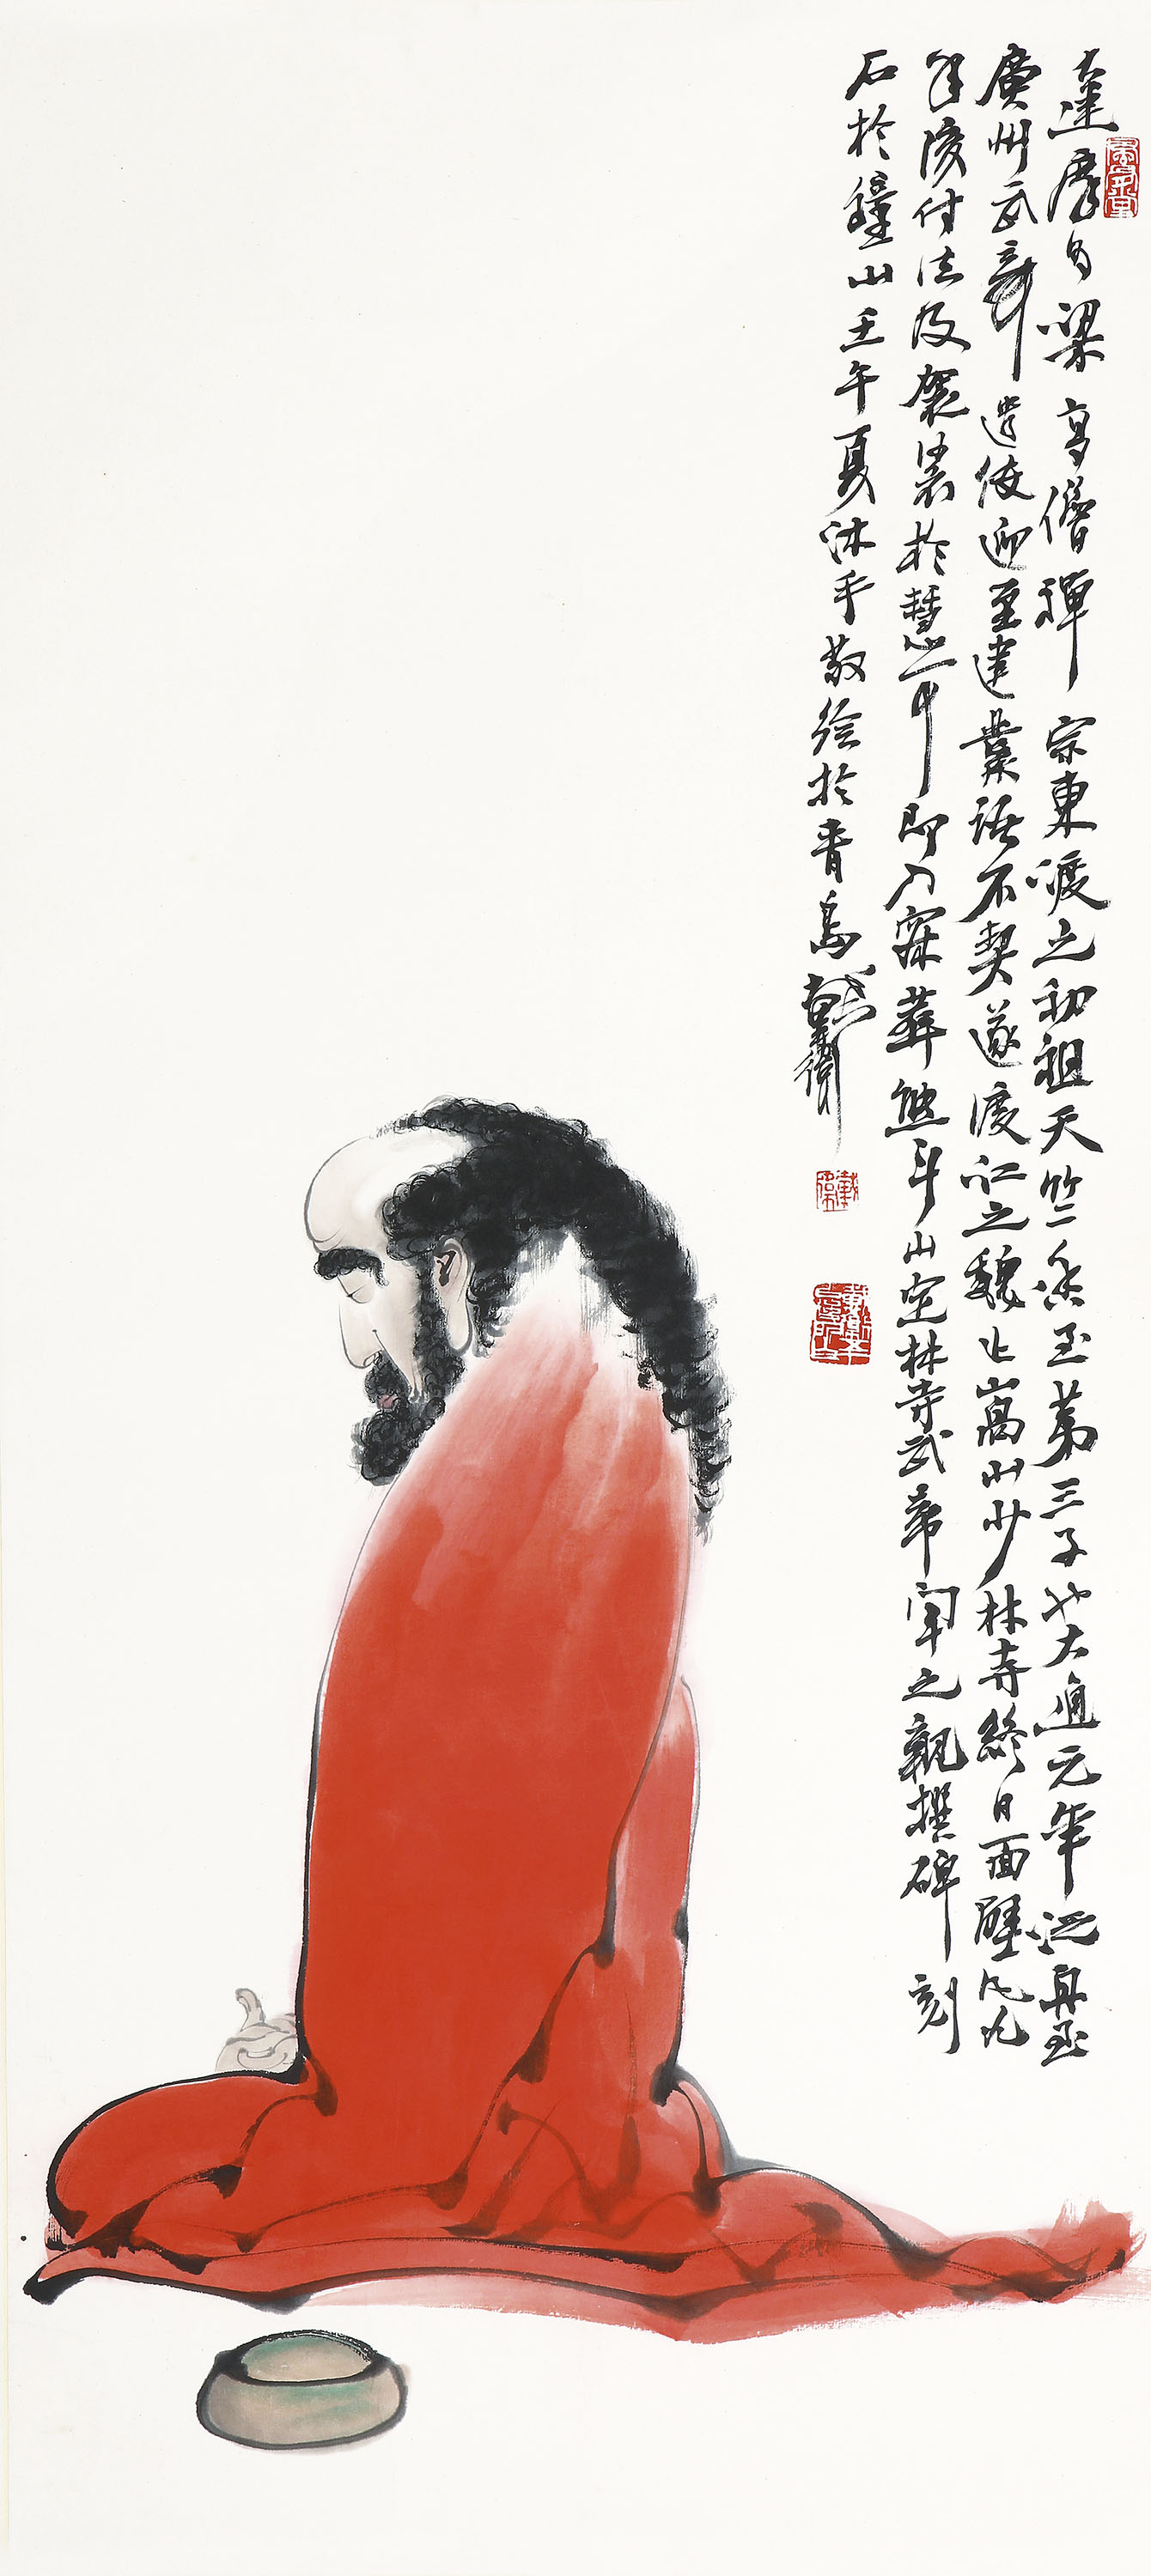 達摩為梁高僧禪宗東渡之初祖天竺香王第三子也大通元年泛舟至
廣州武帝遣使迎至建業語不契遂渡江之魏止嵩山少林寺終日面壁凡九
年後付法及袈裟於慧可即入寂葬熊耳山定林寺武帝聞之親撰碑刻
石於鐘山壬午夏沐手敬繪於青島戴衛
戴衛